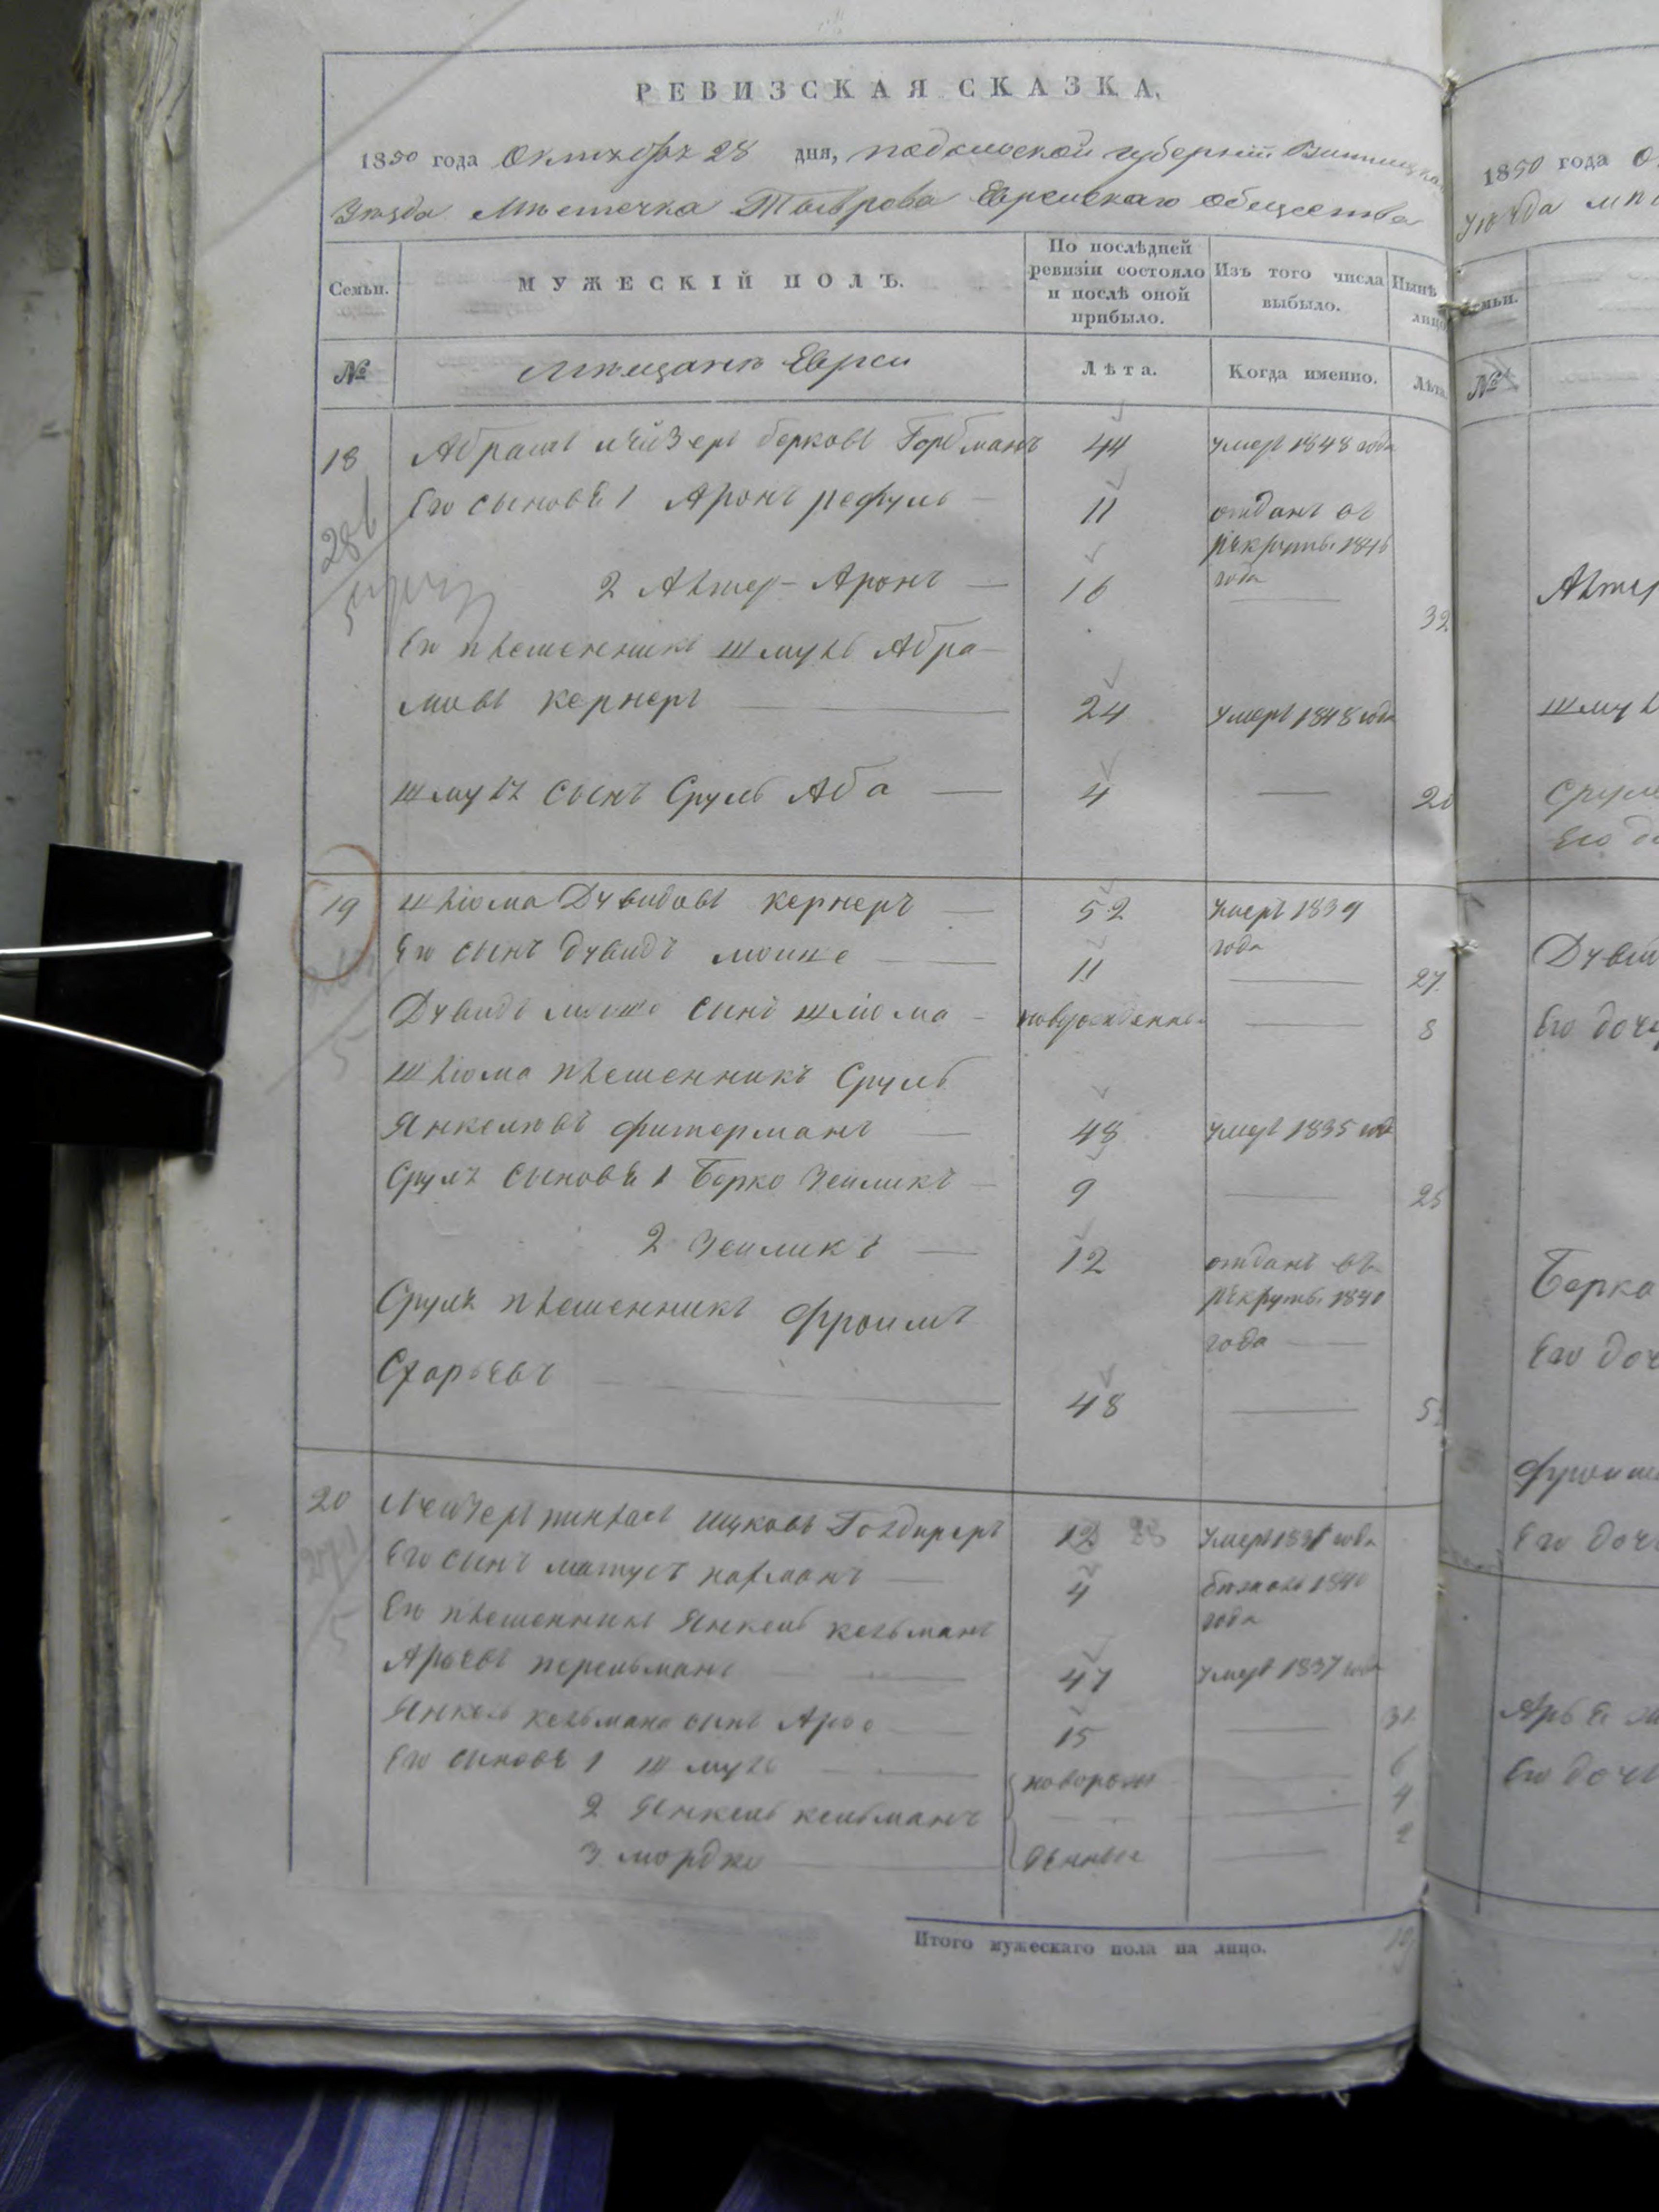 РЕВИЗСКАЯ СКАЗКА.
1850 года Октября 28 дня, Подольской губернии Винницкаго
Уѣзда Мѣстечка Тыврова Еврейскаго Общества
Семьи.
МУЖЕСКІЙ ПОЛЪ.
По послѣдней ревизіи состояло и послѣ оной прибыло.
Изъ того числа выбыло.
Нынѣ лицо
№
Мѣщанѣ Евреи
Лѣта.
Когда именно.
Лѣта.
18 Абрамъ Лейзеръ Берковъ Горбманъ 44 умеръ 1848 года
Его сыновѣ 1 Аронъ Рефуль 11 отданъ въ
рекруты 1846
года
2 Алтер-Аронъ 16 32
Его племенникъ Шмуль Абра-
мовъ Кернеръ 24 умеръ 1848 года
Шмуля сынъ Сруль Аба 4 20
19 Шлiома Дувидовъ Кернеръ 52 умеръ 1839
года
Его сынъ Дувидъ Мошке 11 27
Дувидъ Мошко сынъ Шлiома новорожденны 8
Шлiома племенникъ Сруль
Янкелювъ Фитерманъ 48 умеръ 1835 года
Сруля сыновѣ 1 Берко Зейликъ 9 25
2 Зейликъ 12 отданъ въ
рекруты 1840
года
Сруля племенникъ Фроимъ
48
20 Лейзеръ Пинхас Ицковъ 12 умеръ года
Его сынъ Матусъ Нахманъ 4 1840
года
Его племенникъ Янкель Кельманъ
Арьевъ Перельманъ 47 умеръ 1837 года
Янкель Кельмана сынъ Арье 15 31
Его сыновѣ 1 Шмуль новорож 6
2 Янкель Кельманъ 4
3 Мордко денные 2
Итого мужескаго пола на лицо.
1850 года
Семьи.
№
Алтер
Шмул
Сруля
Его до
Дувид
Его доче
Берка
Его доч
Фроим
Его доч
Его доч